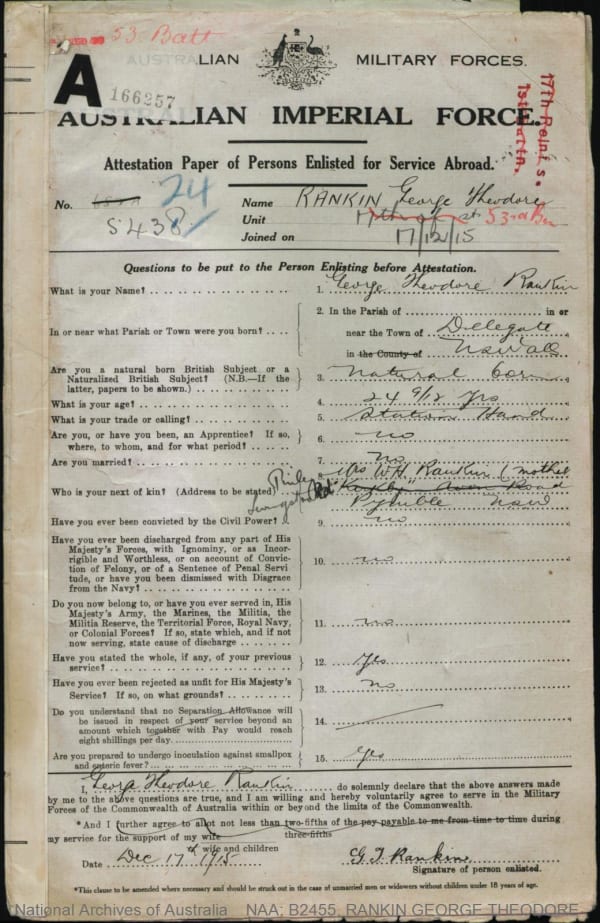 53 Batt
AUSTRALIAN MILITARY FORCES.
A
166257
AUSTRALIAN IMPERIAL FORCE.
17th Reinf's.
1st Battn.
Attestation Paper of Persons Enlisted for Service Abroad.
No. 24
5438
Name RANKIN George Theodore
Unit 53rd Bn
Joined on 17/12/15
Questions to be put to the Person Enlisting before Attestation.
What is your Name? 1. George Theodore Rankin
In or near what Parish or Town were you born? 2. In the Parish of in or
near the Town of Delegate
in the County of NSW
Are you a natural born British Subject or a
Naturalized British Subject? (N.B.—If the
latter, papers to be shown.) 3. Natural born
What is your age? 4. 24 9/12 Yrs
What is your trade or calling? 5. Station Hand
Are you, or have you been, an Apprentice? If so,
where, to whom, and for what period? 6. no
Are you married? 7. No
Who is your next of kin? (Address to be stated) Mrs W H Rankin (mother
Road
Pymble NSW
Have you ever been convicted by the Civil Power? 9. no
Have you ever been discharged from any part of His
Majesty's Forces, with Ignominy, or as Incor-
rigible and Worthless, or on account of Convic-
tion of Felony, or of a Sentence of Penal Servi
tude, or have you been dismissed with Disgrace
from the Navy? 10. no
Do you now belong to, or have you ever served in, His
Majesty's Army, the Marines, the Militia, the
Militia Reserve, the Territorial Force, Royal Navy,
or Colonial Forces? If so, state which, and if not
now serving, state cause of discharge 11. no
Have you stated the whole, if any, of your previous
service? 12. Yes
Have you ever been rejected as unfit for His Majesty's
Service? If so, on what grounds? 13. No
Do you understand that no Separation Allowance will
be issued in respect of your service beyond an
amount which together with Pay would reach
eight shillings per day. 14.
Are you prepared to undergo inoculation against smallpox
and enteric fever? 15. Yes
I, George Theodore Rankin do solemnly declare that the above answers made
by me to the above questions are true, and I am willing and hereby voluntarily agree to serve in the Military
Forces of the Commonwealth of Australia within or beyond the limits of the Commonwealth.
*And I further agree to allot not less than two-fifths of the pay payable to me from time to time during
three-fifths
my service for the support of my wife
wife and children
Date Dec 17th 1915
G T Rankin
Signature of person enlisted.
*This clause to be amended where necessary and should be struck out in the case of unmarried men or widowers without children under 18 years of age.
National Archives of Australia NAA: B2455, RANKIN GEORGE THEODORE